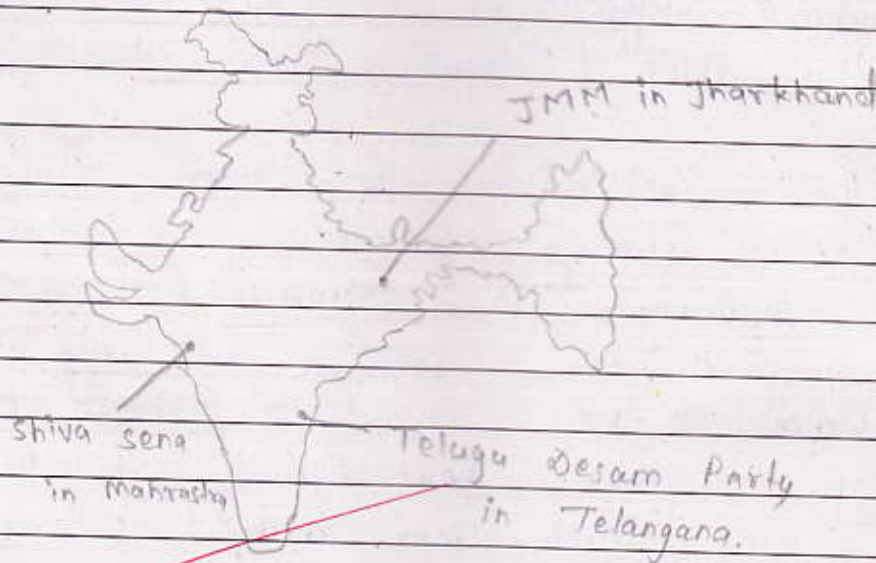 JMM in Jharkhand
Shiva sena
in Mahrastra
Telugu Desam Party
in Telangana.